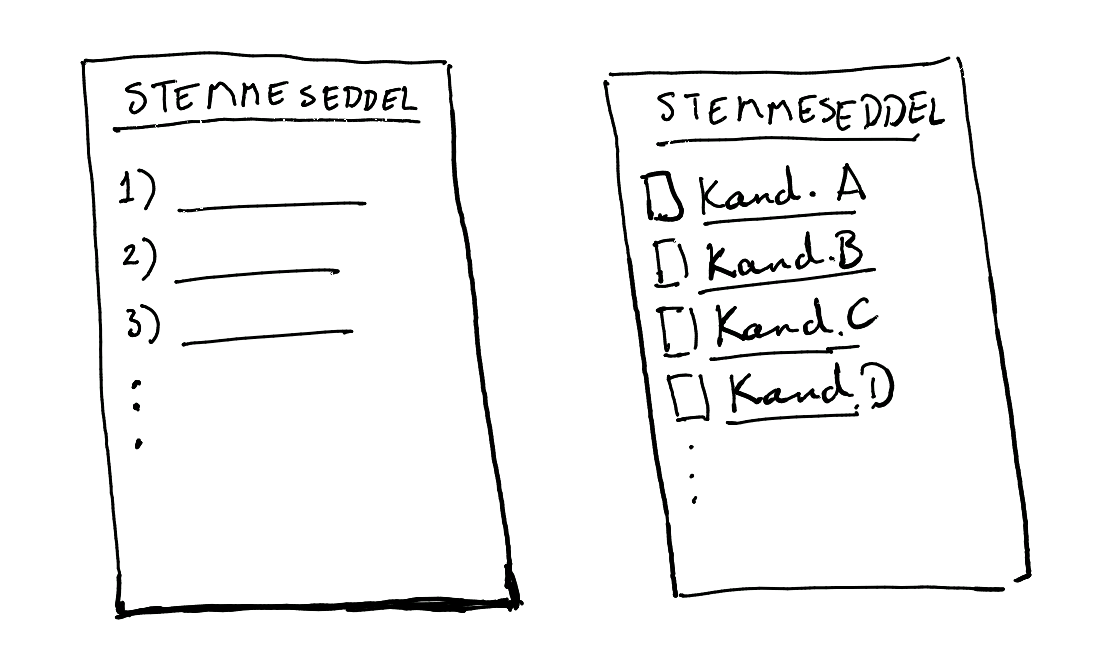 STEMMESEDDEL
1)
2)
3)
STEMMESEDDEL
Kand. A
Kand. B
Kand. C
Kand. D